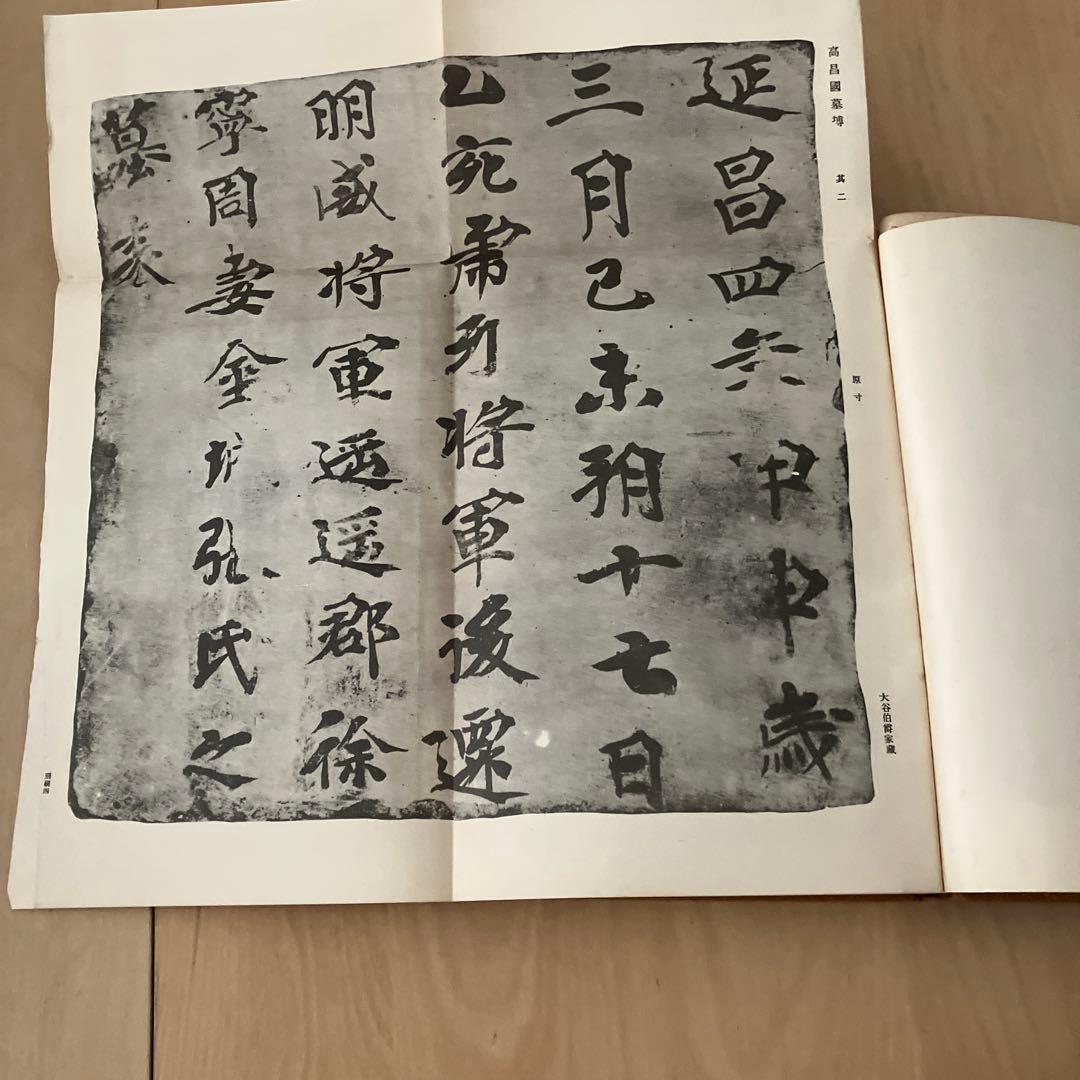 高昌國墓塼 其二
原寸
大谷伯爵家藏
延昌四年甲申歲
三月己未朔十七日
乙亥虎牙将軍後遷
明威将軍遥遥郡徐
寧周妻金城張氏之
墓表
別刷四